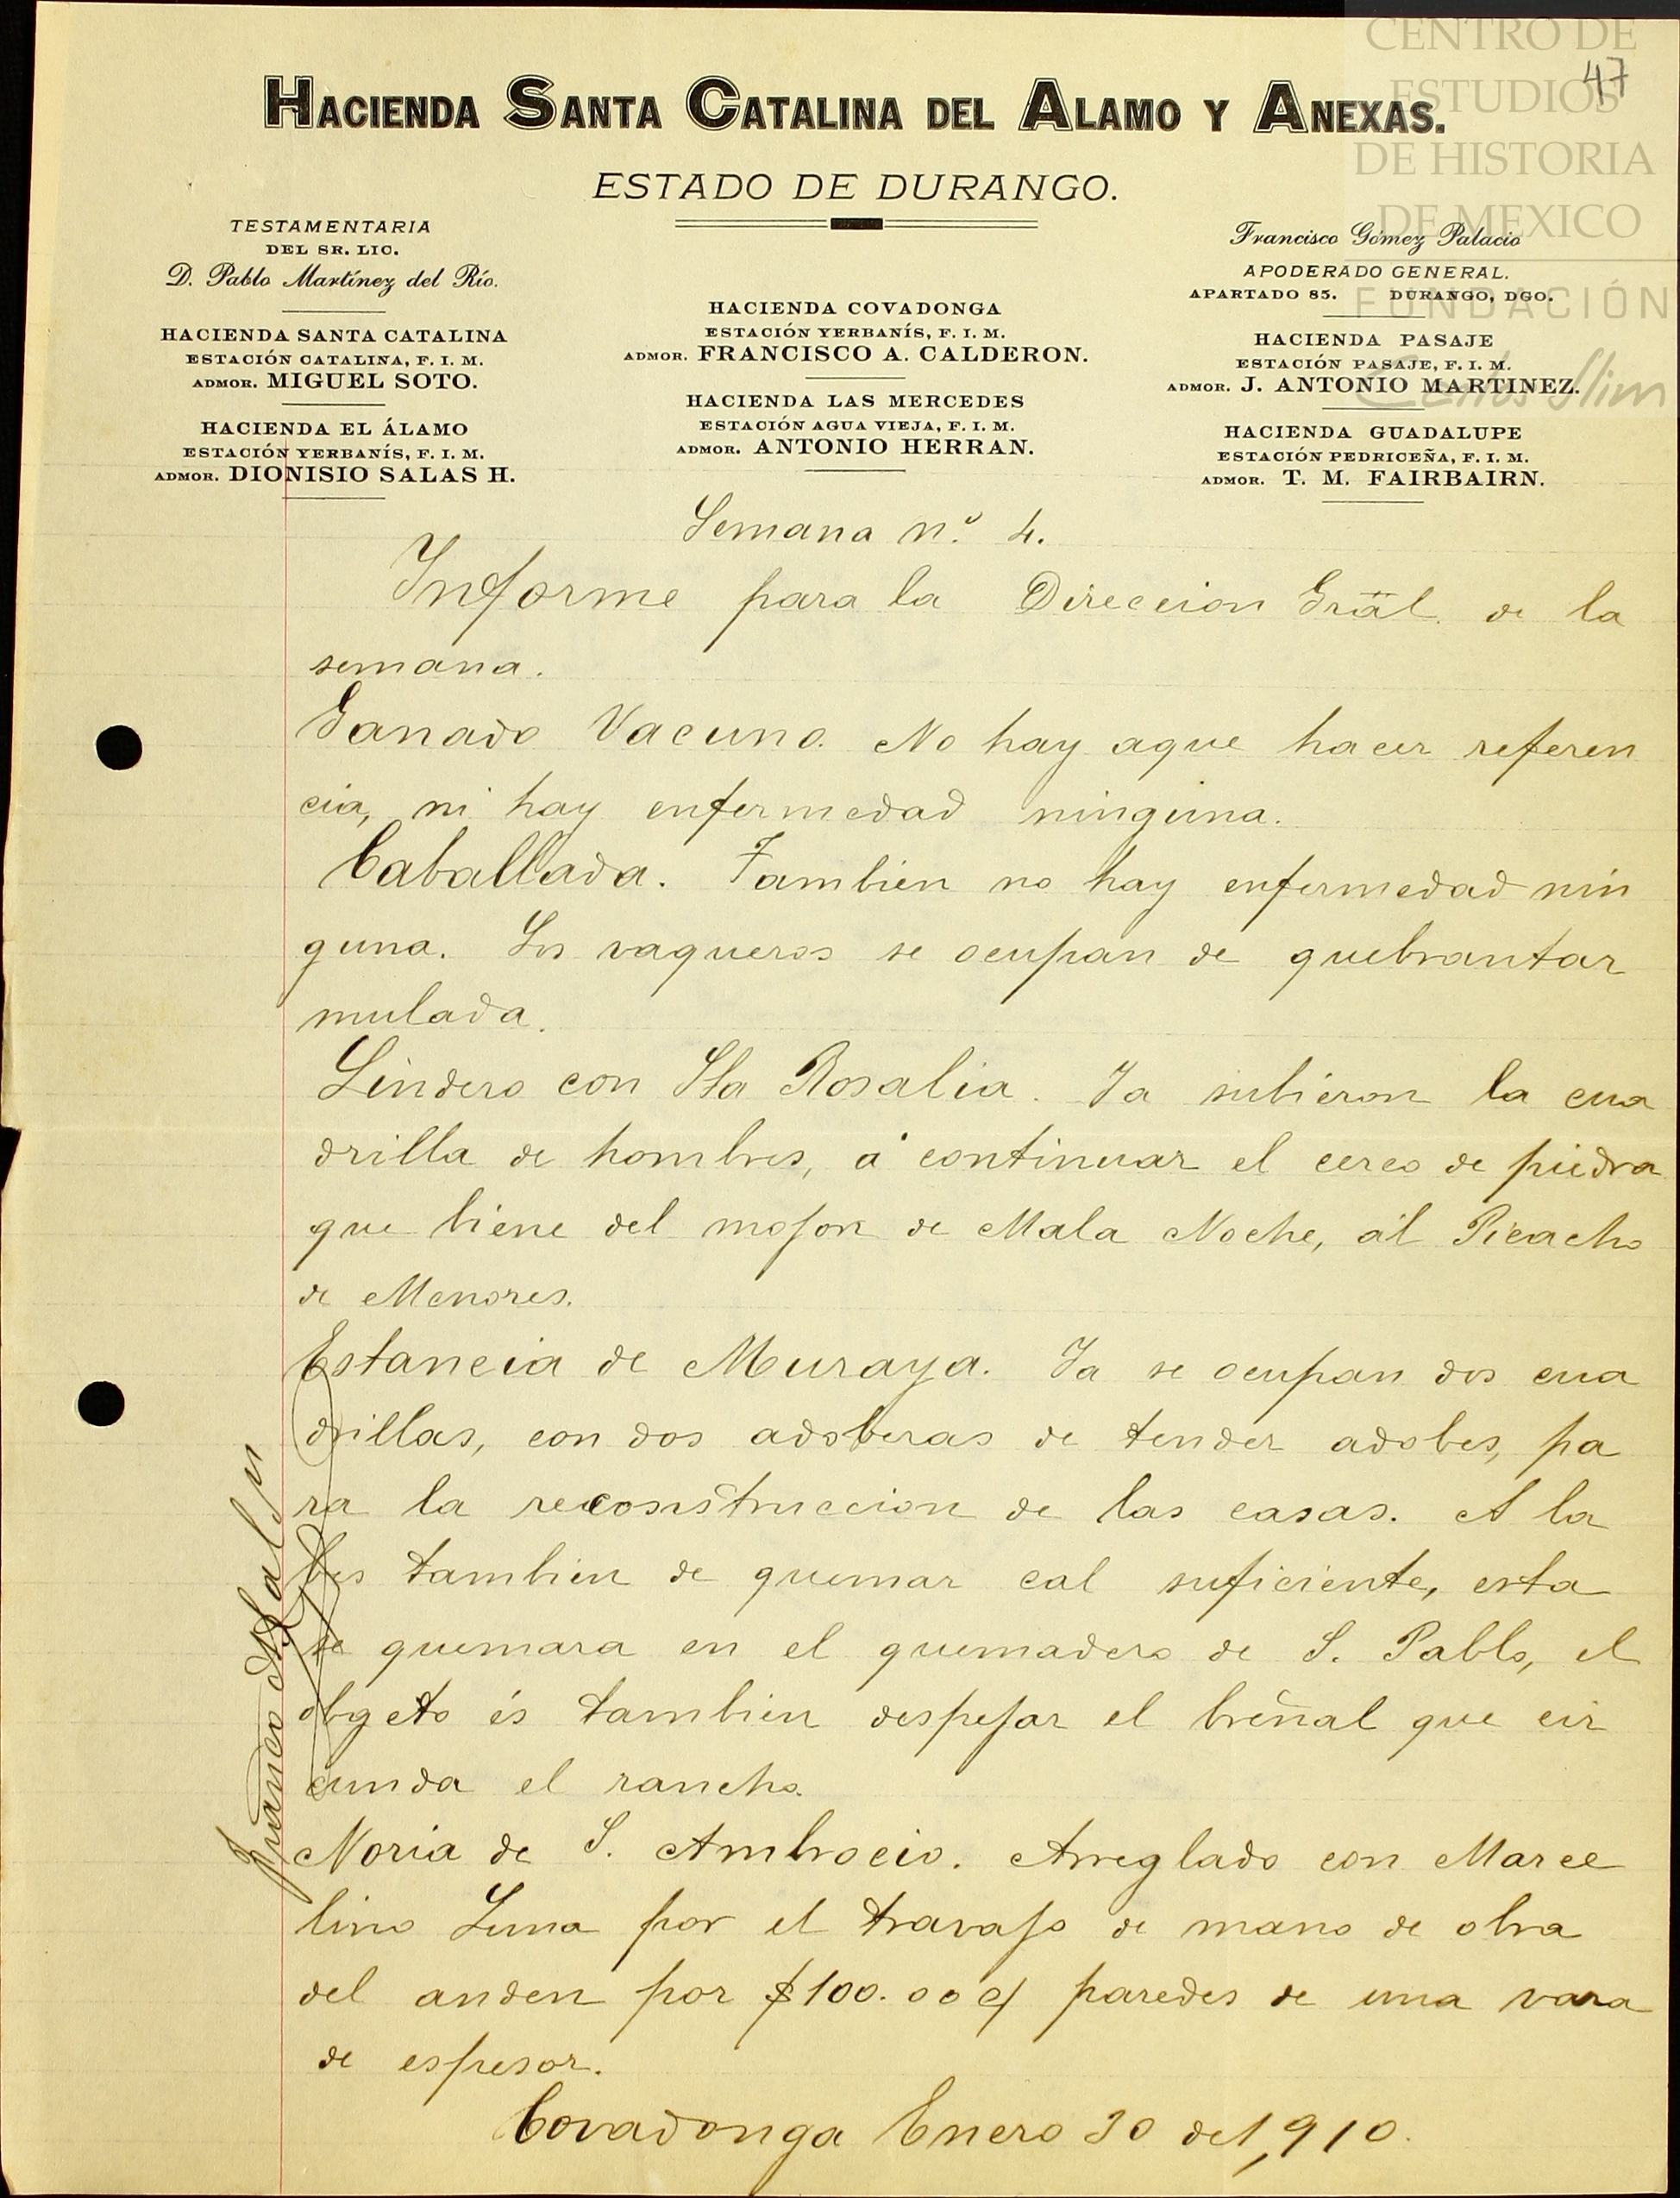 CENTRO DE
ESTUDIOS
DE HISTORIA
DE MEXICO
FUNDACIÓN
Carlos Slim
47
HACIENDA SANTA CATALINA DEL ALAMO Y ANEXAS.
ESTADO DE DURANGO.
TESTAMENTARIA
DEL SR. LIC.
D. Pablo Martínez del Río.
HACIENDA SANTA CATALINA
ESTACIÓN CATALINA, F. I. M.
ADMOR. MIGUEL SOTO.
HACIENDA EL ÁLAMO
ESTACIÓN YERBANÍS, F. I. M.
ADMOR. DIONISIO SALAS H.
HACIENDA COVADONGA
ESTACIÓN YERBANÍS, F. I. M.
ADMOR. FRANCISCO A. CALDERON.
HACIENDA LAS MERCEDES
ESTACIÓN AGUA VIEJA, F. I. M.
ADMOR. ANTONIO HERRAN.
Francisco Gómez Palacio
APODERADO GENERAL.
APARTADO 85. DURANGO, DGO.
HACIENDA PASAJE
ESTACIÓN PASAJE, F. I. M.
ADMOR. J. ANTONIO MARTINEZ.
HACIENDA GUADALUPE
ESTACIÓN PEDRICEÑA, F. I. M.
ADMOR. T. M. FAIRBAIRN.
Semana n.º 4.
Informe para la Direccion Gräl. de la
semana.
Ganado Vacuno. No hay aque hacer referen
cia, ni hay enfermedad ninguna.
Caballada. Tambien no hay enfermedad nin
guna. Los vaqueros se ocupan de quebrantar
mulada.
Lindero con Sta Rosalia. Ya subieron la cua
drilla de hombres, á continuar el cerco de piedra
que biene del mojon de Mala Noche, al Picacho
de Menores.
Estancia de Muraya. Ya se ocupan dos cua
drillas, con dos adoberas de tender adobes, pa
ra la recosistruccion de las casas. A la
bes tambien de quemar cal suficiente, esta
se quemara en el quemadero de S. Pablo, el
obgeto és tambien despejar el breñal que cir
cunda el rancho.
Noria de S. Ambrocio. Arreglado con Marce
lino Luna por el travajo de mano de obra
del anden por $100.00 c/ paredes de una vara
de espesor.
Covadonga Enero 30 de 1,910.